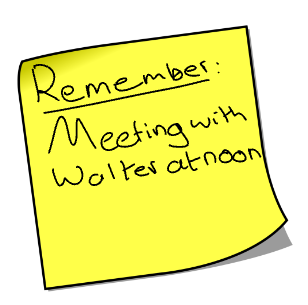 Remember:
Meeting with
Walter at noon